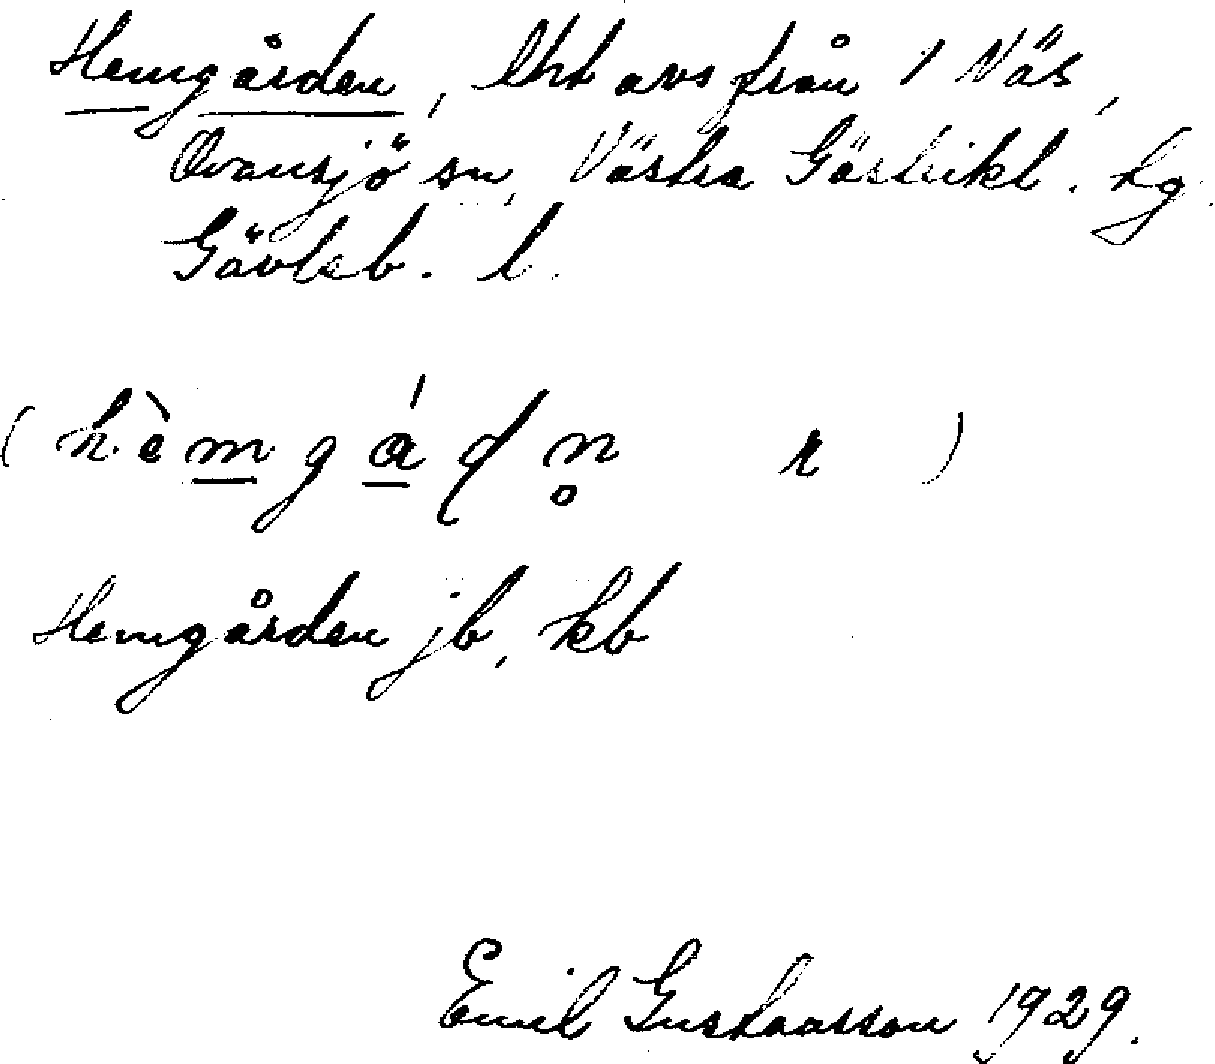 Hemgården, lht avs från 1 Näs,
Ovansjö sn, Västra Gästrikl. tg.
Gävleb. l.
(hèmgádn̥ r)
Hemgården jb, kb
Emil Gustavsson 1929.